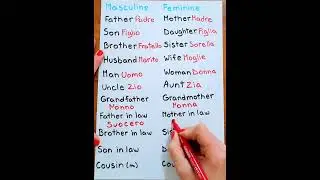 Masculine Feminine
Father Padre Mother Madre
Son Figlio Daughter Figlia
Brother Fratello Sister Sorella
Husband Marito Wife Moglie
Man Uomo Woman Donna
Uncle Zio Aunt Zia
Grandfather Grandmother
Nonno Nonna
Father in law Mother in law
Suocero
Brother in law
Son in law
Cousin (m)